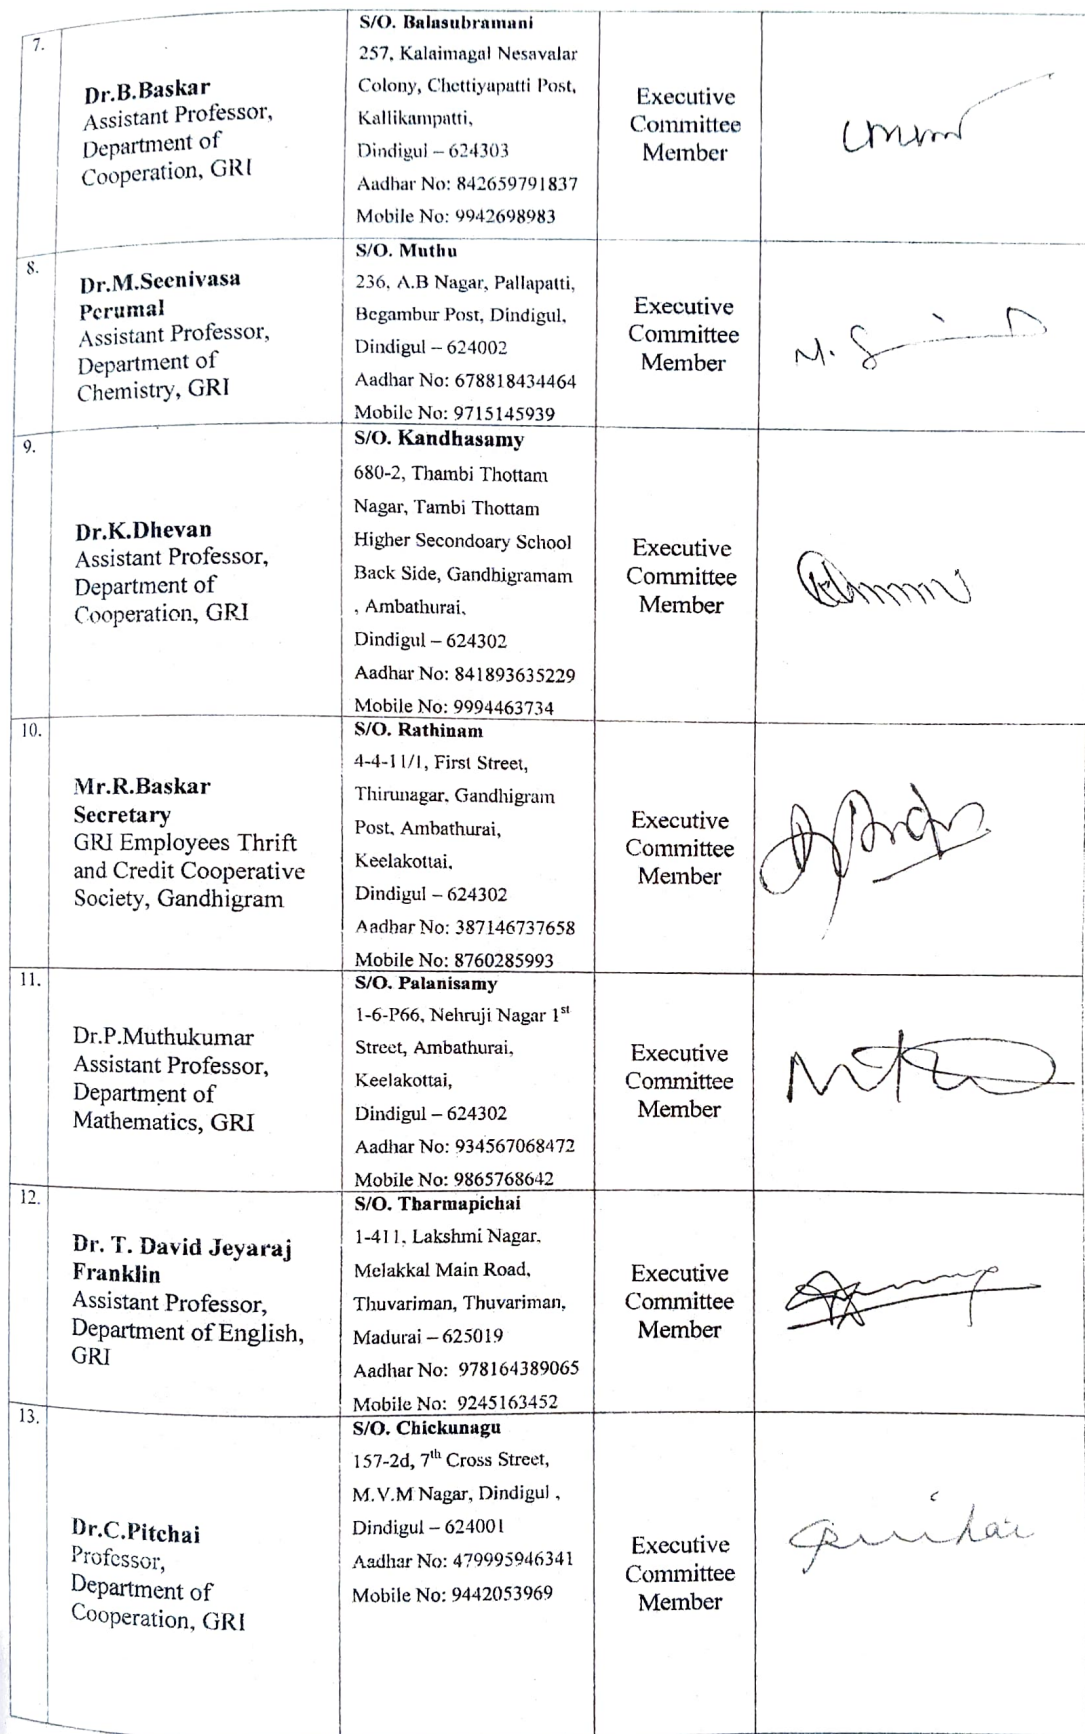 7.
Dr.B.Baskar
Assistant Professor,
Department of
Cooperation, GRI
S/O. Balasubramani
257, Kalaimagal Nesavalar
Colony, Chettiyapatti Post,
Kallikampatti,
Dindigul – 624303
Aadhar No: 842659791837
Mobile No: 9942698983
Executive
Committee
Member
8.
Dr.M.Seenivasa
Perumal
Assistant Professor,
Department of
Chemistry, GRI
S/O. Muthu
236, A.B Nagar, Pallapatti,
Begambur Post, Dindigul,
Dindigul – 624002
Aadhar No: 678818434464
Mobile No: 9715145939
Executive
Committee
Member
9.
Dr.K.Dhevan
Assistant Professor,
Department of
Cooperation, GRI
S/O. Kandhasamy
680-2, Thambi Thottam
Nagar, Tambi Thottam
Higher Secondoary School
Back Side, Gandhigramam
, Ambathurai,
Dindigul – 624302
Aadhar No: 841893635229
Mobile No: 9994463734
Executive
Committee
Member
10.
Mr.R.Baskar
Secretary
GRI Employees Thrift
and Credit Cooperative
Society, Gandhigram
S/O. Rathinam
4-4-11/1, First Street,
Thirunagar, Gandhigram
Post, Ambathurai,
Keelakottai,
Dindigul – 624302
Aadhar No: 387146737658
Mobile No: 8760285993
Executive
Committee
Member
11.
Dr.P.Muthukumar
Assistant Professor,
Department of
Mathematics, GRI
S/O. Palanisamy
1-6-P66, Nehruji Nagar 1st
Street, Ambathurai,
Keelakottai,
Dindigul – 624302
Aadhar No: 934567068472
Mobile No: 9865768642
Executive
Committee
Member
12.
Dr. T. David Jeyaraj
Franklin
Assistant Professor,
Department of English,
GRI
S/O. Tharmapichai
1-411, Lakshmi Nagar,
Melakkal Main Road,
Thuvariman, Thuvariman,
Madurai – 625019
Aadhar No: 978164389065
Mobile No: 9245163452
Executive
Committee
Member
13.
Dr.C.Pitchai
Professor,
Department of
Cooperation, GRI
S/O. Chickunagu
157-2d, 7th Cross Street,
M.V.M Nagar, Dindigul ,
Dindigul – 624001
Aadhar No: 479995946341
Mobile No: 9442053969
Executive
Committee
Member